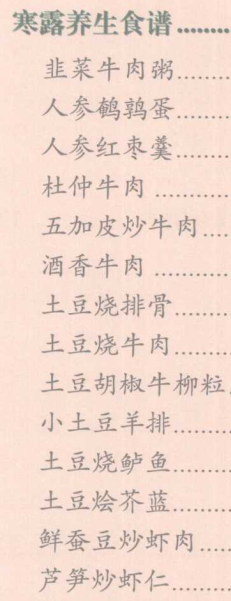 寒露养生食谱.........
韭菜牛肉粥.......
人参鹌鹑蛋.......
人参红枣羹.......
杜仲牛肉..........
五加皮炒牛肉....
酒香牛肉..........
土豆烧排骨.......
土豆烧牛肉.......
土豆胡椒牛柳粒.
小土豆羊排.......
土豆烧鲈鱼.......
土豆烩芥蓝.......
鲜蚕豆炒虾肉....
芦笋炒虾仁.......